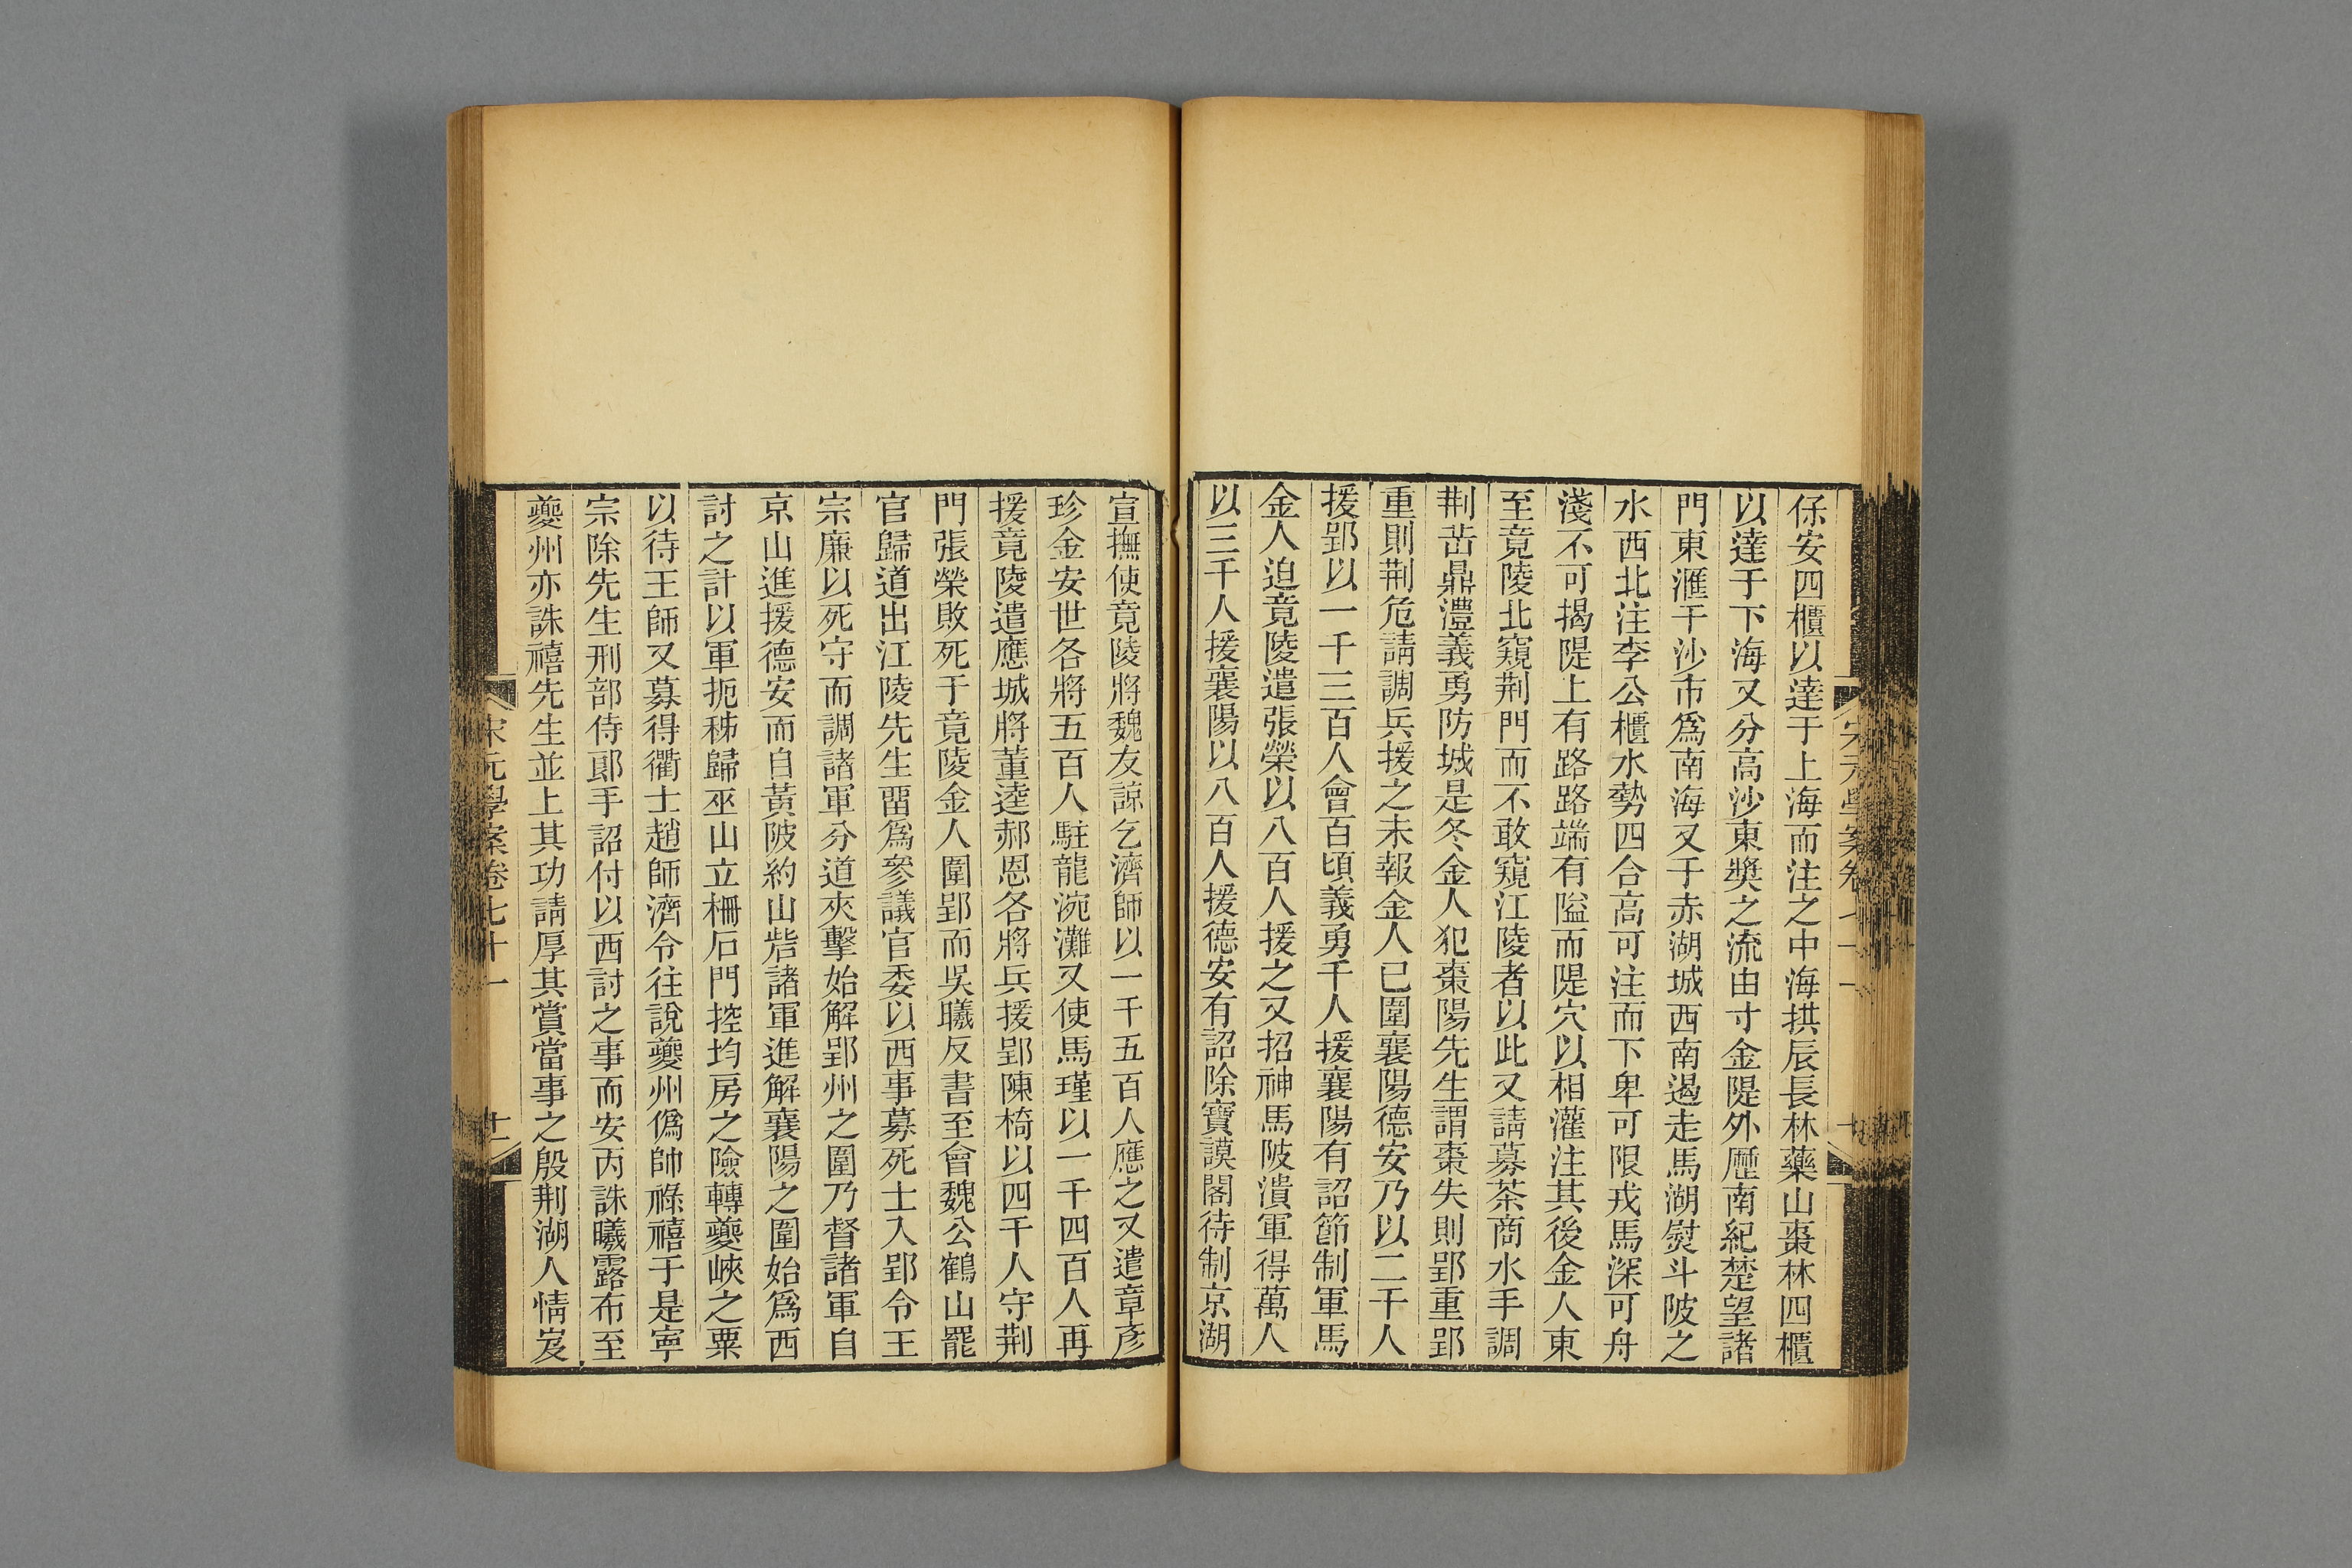 保安四櫃以達于上海而注之中海拱辰長林藥山棗林四櫃
以達于下海又分高沙東奬之流由寸金隄外歷南紀楚望諸
門東滙于沙市爲南海又于赤湖城西南遏走馬湖熨斗陂之
水西北注李公櫃水勢四合高可注而下卑可限戎馬深可舟
淺不可揭隄上有路路端有隘而隄穴以相灌注其後金人東
至竟陵北窺荆門而不敢窺江陵者以此又請募茶商水手調
荆岳鼎澧義勇防城是冬金人犯棗陽先生謂棗失則郢重郢
重則荆危請調兵援之未報金人已圍襄陽德安乃以二千人
援郢以一千三百人會百頃義勇千人援襄陽有詔節制軍馬
金人迫竟陵遣張榮以八百人援之又招神馬陂潰軍得萬人
以三千人援襄陽以八百人援德安有詔除寶謨閣待制京湖
宣撫使竟陵將魏友諒乞濟師以一千五百人應之又遣章彥
珍金安世各將五百人駐龍涴灘又使馬瑾以一千四百人再
援竟陵遣應城將董逵郝恩各將兵援郢陳椅以四千人守荆
門張榮敗死于竟陵金人圍郢而吳曦反書至會魏公鶴山罷
官歸道出江陵先生畱爲參議官委以西事募死士入郢令王
宗廉以死守而調諸軍分道夾擊始解郢州之圍乃督諸軍自
京山進援德安而自黃陂約山砦諸軍進解襄陽之圍始爲西
討之計以軍扼秭歸巫山立柵石門控均房之險轉夔峽之粟
以待王師又募得衢士趙師濟令往說夔州僞帥祿禧于是寧
宗除先生刑部侍郎手詔付以西討之事而安丙誅曦露布至
夔州亦誅禧先生並上其功請厚其賞當事之殷荆湖人情岌
宋元學案卷七十一
十二